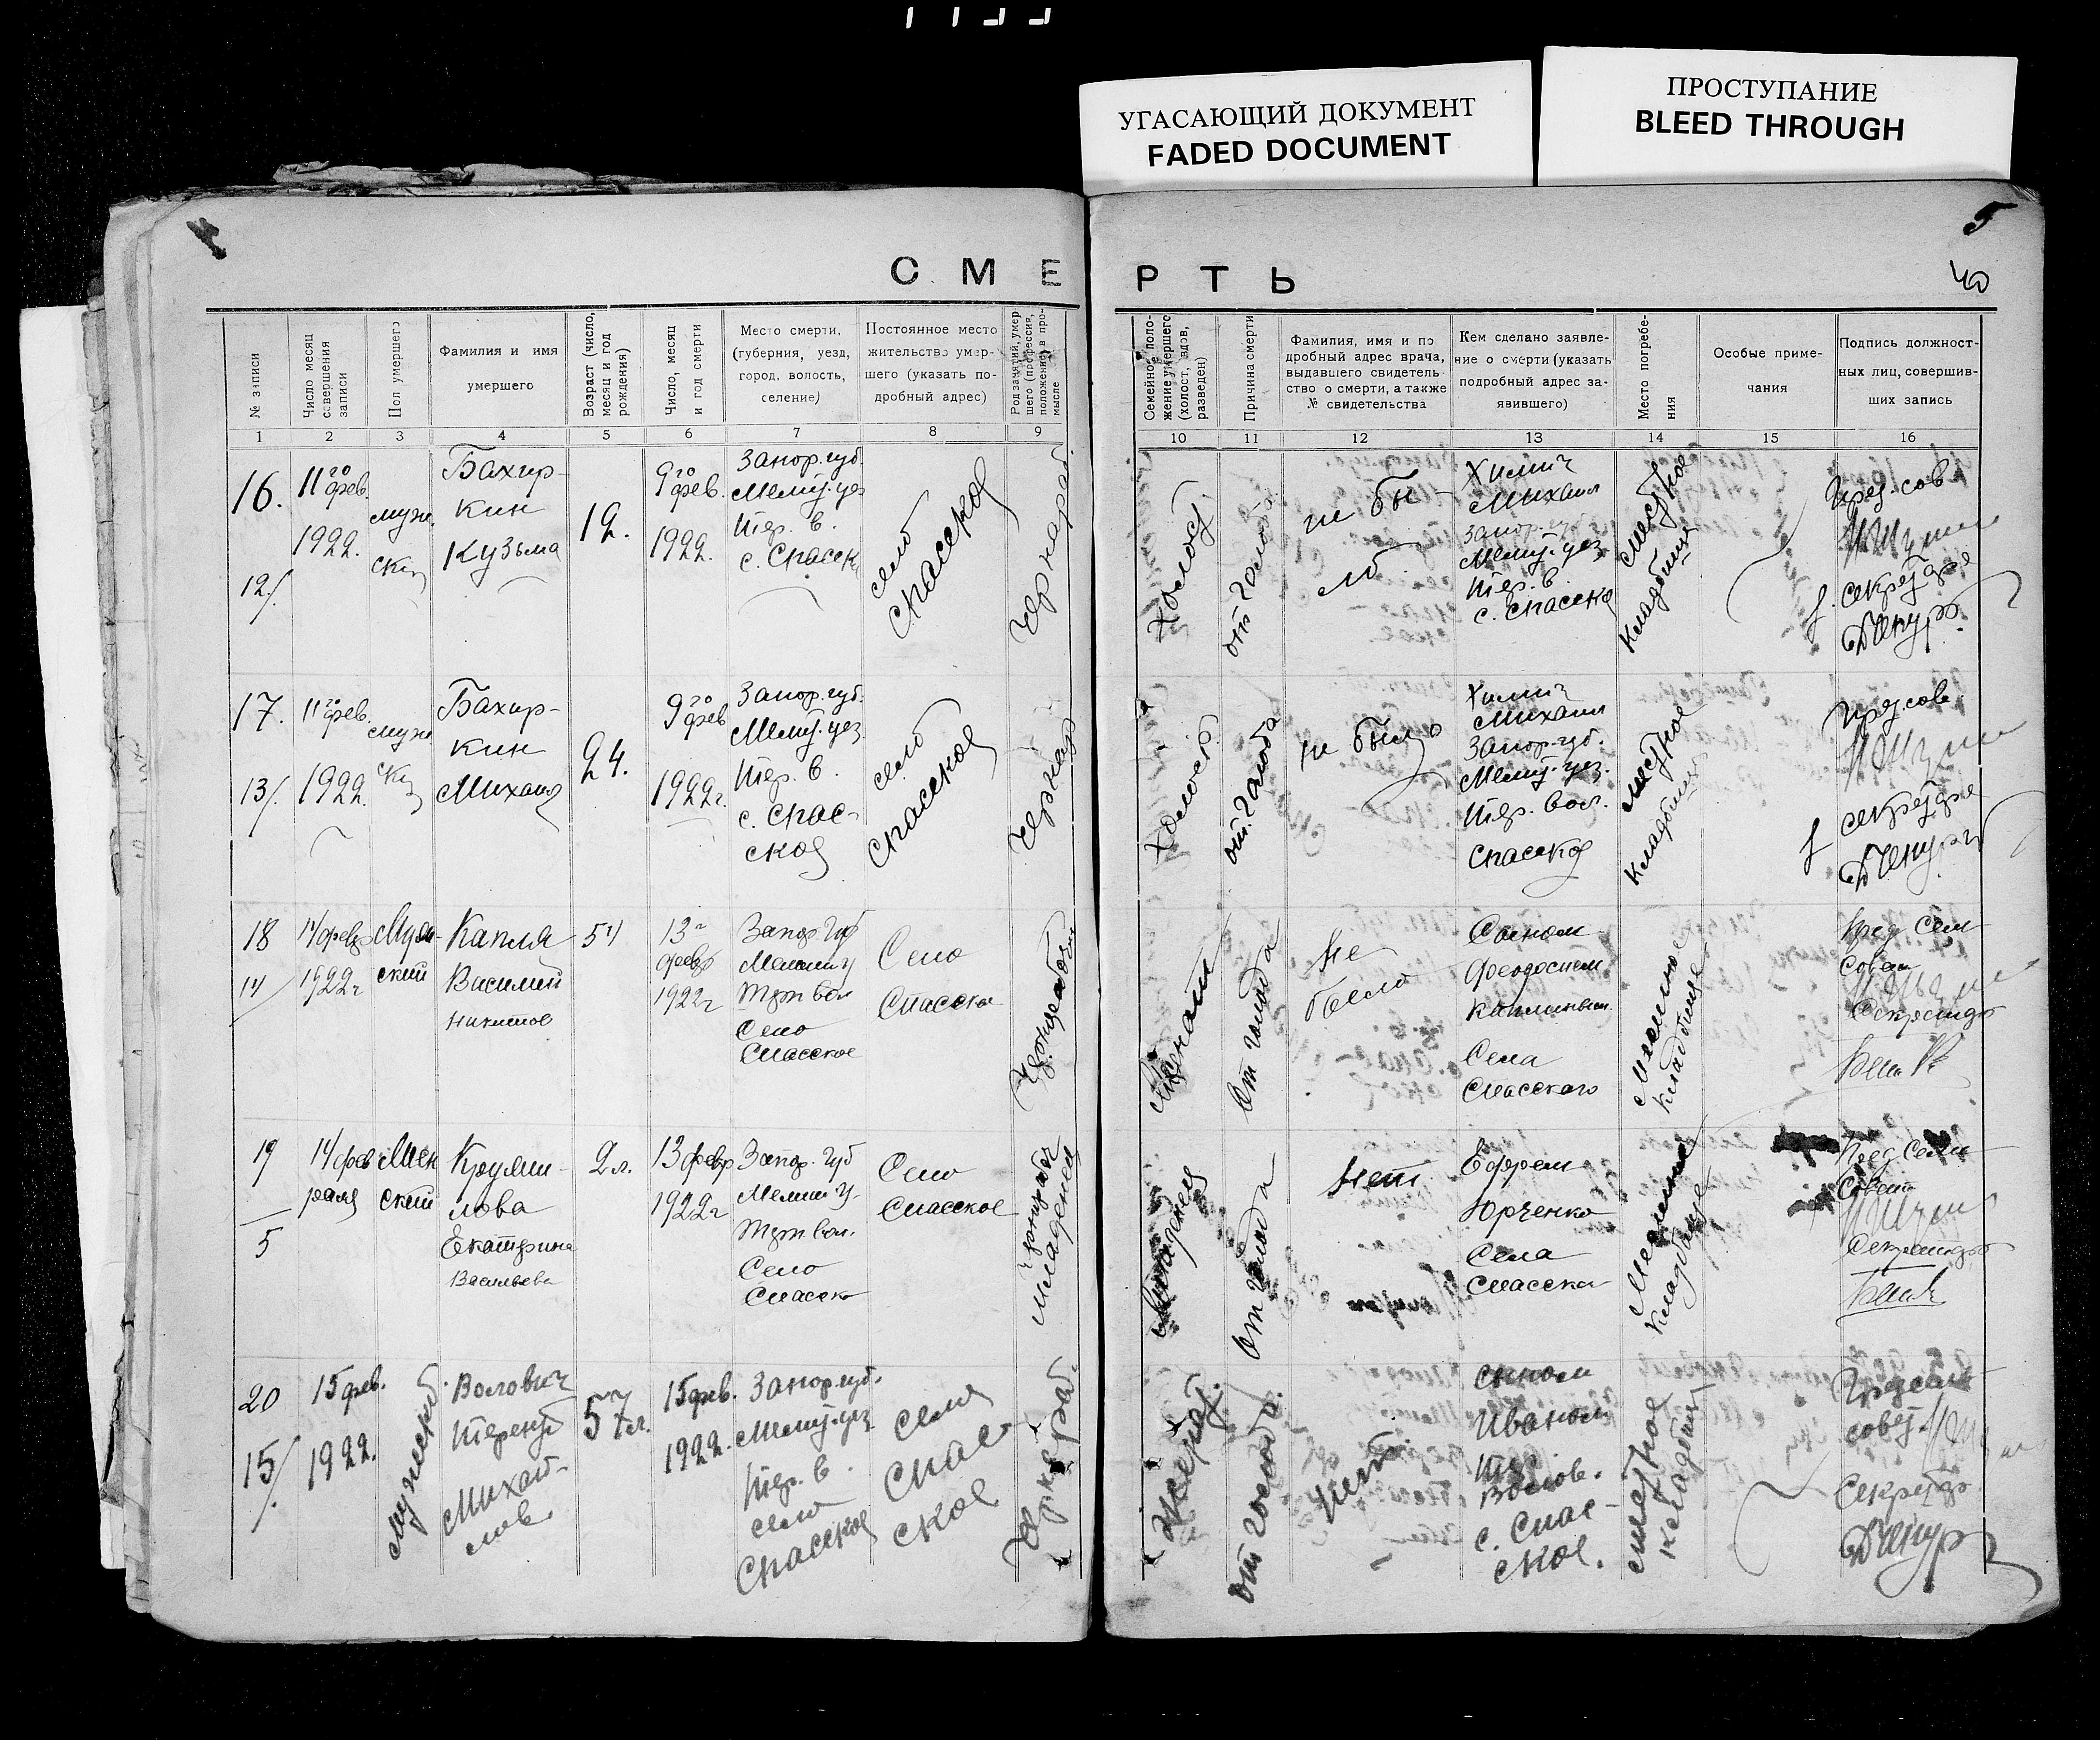 УГАСАЮЩИЙ ДОКУМЕНТ
FADED DOCUMENT
ПРОСТУПАНИЕ
BLEED THROUGH
5
40
СМЕРТЬ
№ записи
Число месяц совершения записи
Пол умершего
Фамилия и имя
умершего
Возраст (число, месяц и год рождения)
Число, месяц и год смерти
Место смерти,
(губерния, уезд,
город, волость,
селение)
Постоянное место
жительство умер-
шего (указать по-
дробный адрес)
Род занятий, умер
шего (профессия,
положение) в про-
мысле
Семейное поло-
жение умершего
(холост, вдов,
разведен)
Причина смерти
Фамилия, имя и по
дробный адрес врача,
выдавшего свидетель-
ство о смерти, а также
№ свидетельства
Кем сделано заявле-
ние о смерти (указать
подробный адрес за-
явившего)
Место погребе-
ния
Особые приме-
чания
Подпись должност-
ных лиц, совершив-
ших запись
1 2 3 4 5 6 7 8 9 10 11 12 13 14 15 16
16.
12/.
11го фев.
1922.
муж.
Бахир-
кин
Кузьма
12.
9го фев.
1922.
Запор. губ.
Мелит. уез
Тер. в.
с. Спасск
село
Спасское
Чернораб.
Холост.
от голода
не бы-
ло
Химич
Михаил
Запор. губ.
Мелит. уез.
Тер. в.
с. Спасско
местное
кладбищ
Пред. сов
секретаре
17.
13/.
11го фев.
1922.
муж
Бахир-
кин
Михаил
24.
9го фев
1922г.
Запор. губ.
Мелит. уез
Тер. в.
с. Спас-
ское
село
Спасское
Чернор
Холост.
от голода
не было
Химич
Михаил
Запор. губ.
Мелит. уез.
Тер. вол.
Спасское
местное
кладбищ
Пред. сов
секретаре
18
14
14 февр
1922г
Муж-
ский
Капля
Василий
Никитов
54
13г
февр
1922г
Запор губ
Мелит у
Терп вол
Село
Спасское
Село
Спасско
Чернорабочий
Женат
От голода
Не
было
Сыном
Феодосием
Каплиным
Села
Спасского
Местное
кладбище
Пред Сель
Совет
Секретарь
19
5
14 фев
раля
Жен
ский
Крупи-
лова
Екатерина
Васильева
2 л.
13 февр
1922г
Запор. губ
Мелит у.
Терп вол.
Село
Спасско
Село
Спасское
Чернорабоч
Младенец
Младенец
От голода
Нет
Ефрем
Юрченко
Села
Спасско
Местное
кладбище
Пред Сель
Совета
Секретарь
20
15/.
15 фев.
1922.
мужеск.
Волович
Терентий
Михай-
лов
57 л.
15 фев.
1922.
Запор. губ.
Мелит. уез
Тер. в.
село
Спасское
село
Спас-
ское
Чернораб.
Женат.
от голода.
нет.
сыном
Иваном
Волов.
с. Спас-
ское.
местное
кладбищ
Пред сель
совет.
Секретар.